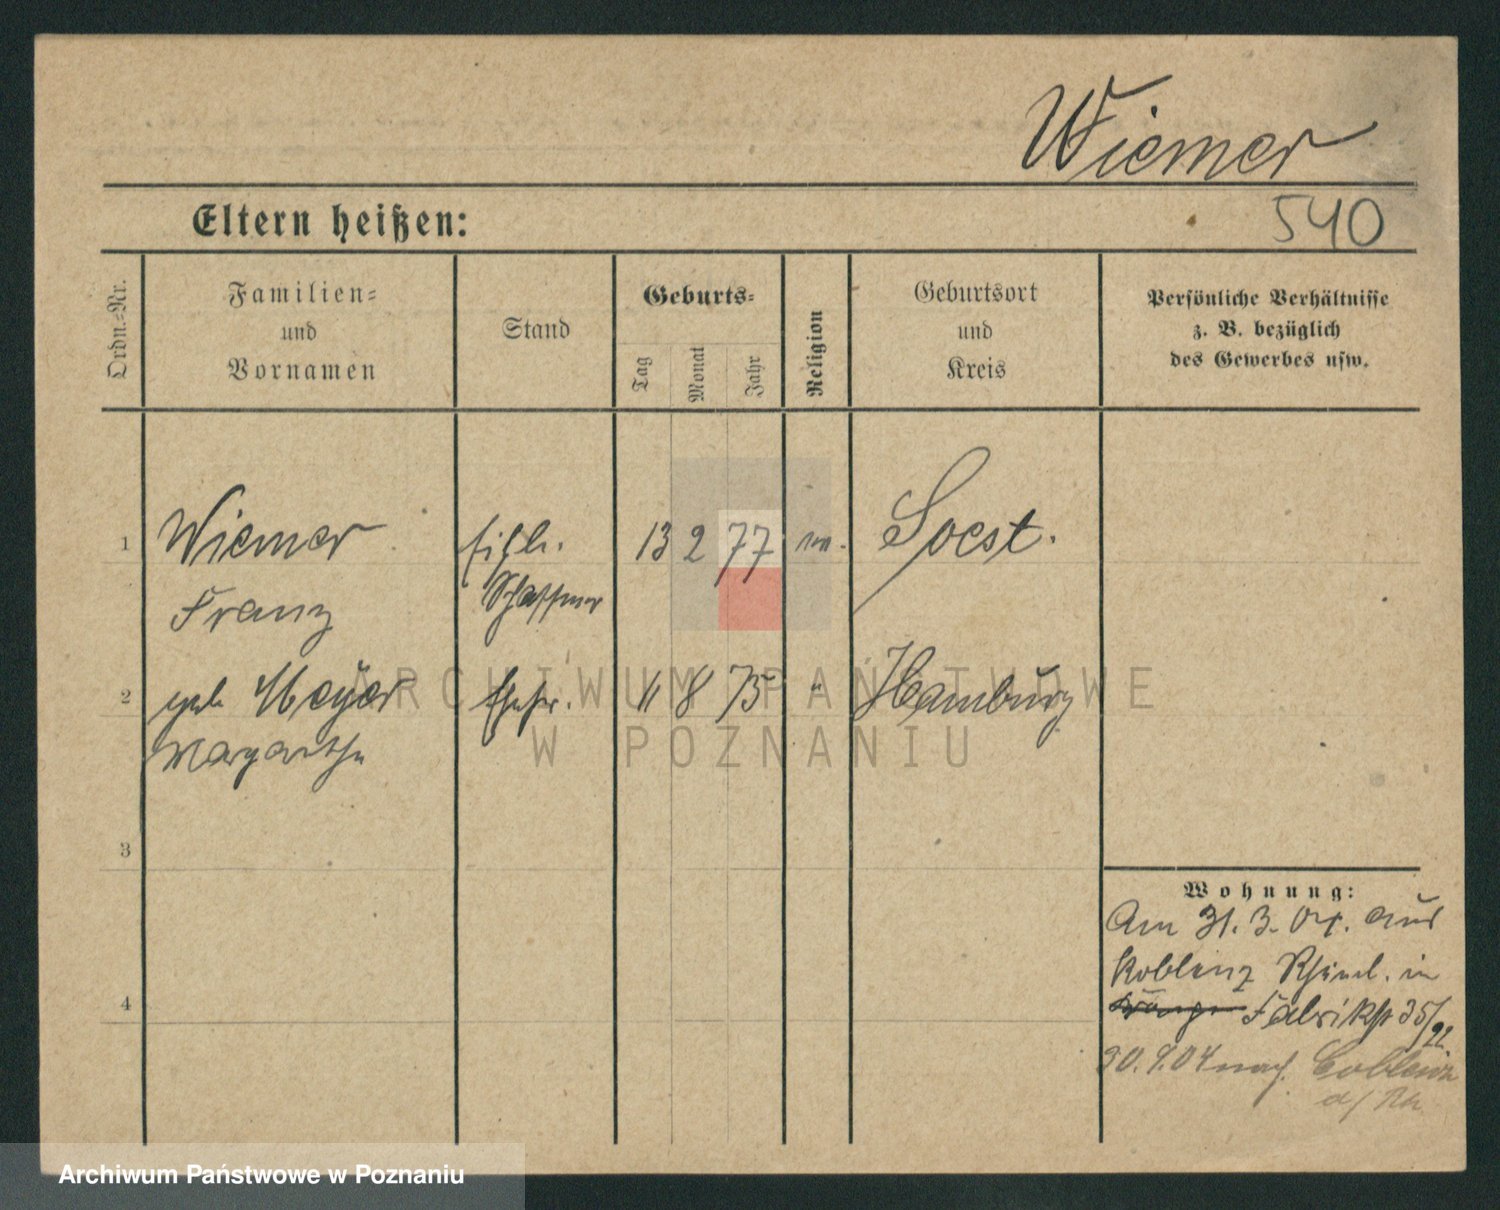 Wiemer
540
Eltern heißen:
Ordn.-Nr.
Familien-
und
Vornamen
Stand
Geburts-
Tag
Monat
Jahr
Religion
Geburtsort
und
Kreis
Persönliche Verhältnisse
z. B. bezüglich
des Gewerbes usw.
1
Wiemer
Franz
Schaffner
13 2 77
Soest.
2
geb Meyer
Margarethe
Ehefr.
11 8 75
"
Hamburg
3
4
Wohnung:
Am 31. 3. 04. aus
Koblenz Rheinl. in
Fabrikstr 35/
30. 9. 04 nach Coblenz
a/ Rh
ARCHIWUM PAŃSTWOWE
W POZNANIU
Archiwum Państwowe w Poznaniu